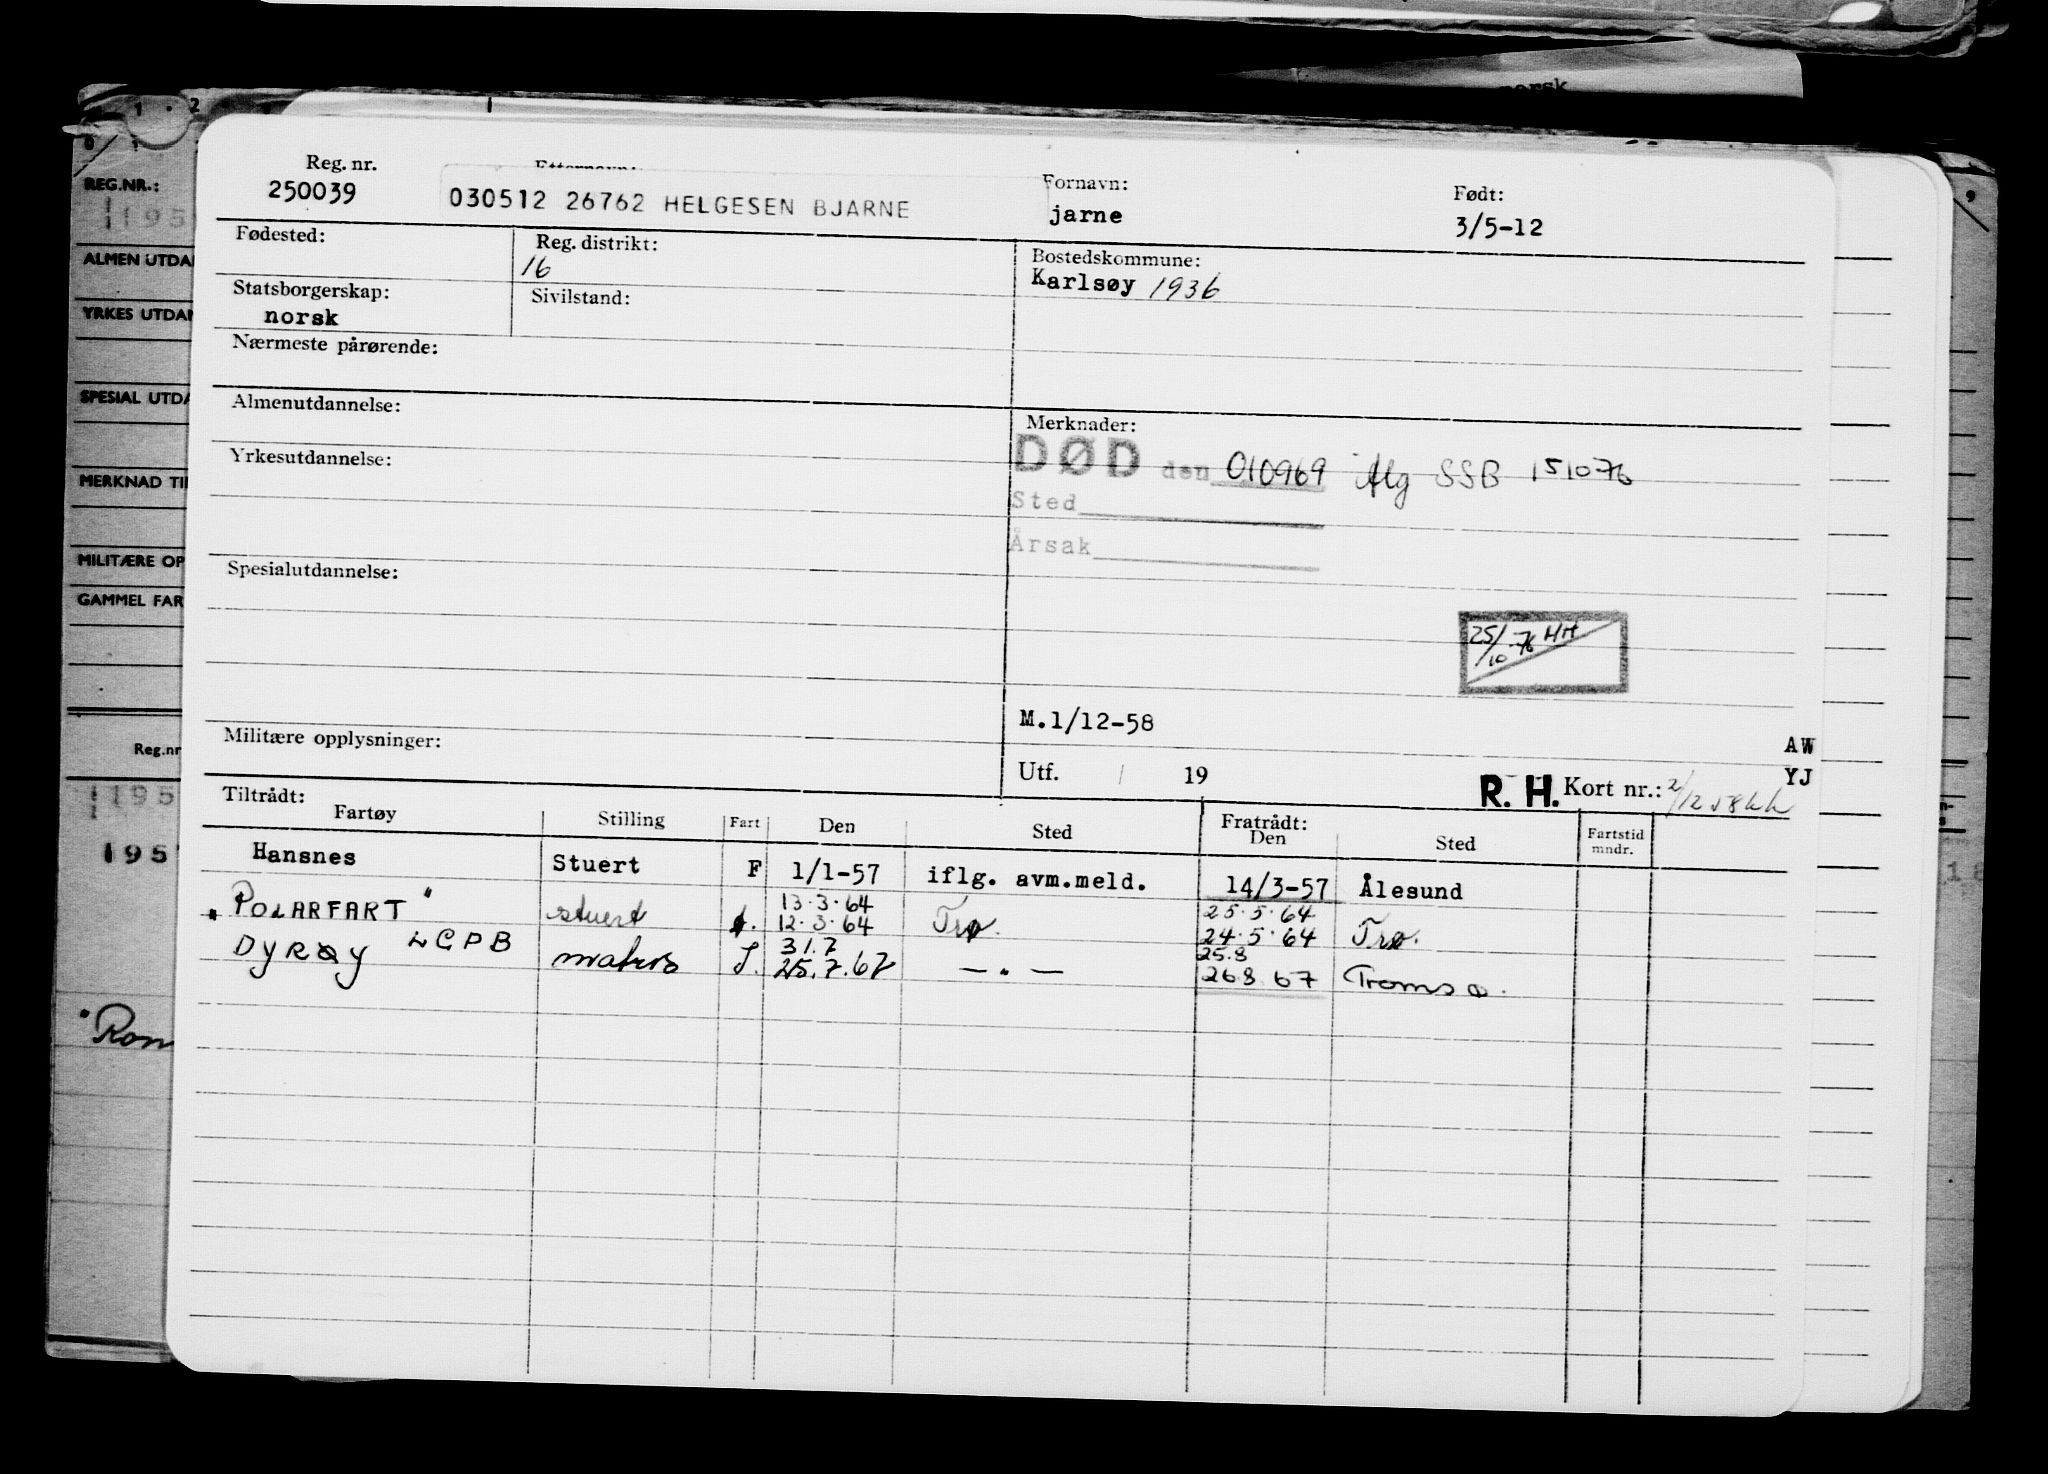 norsk
1 . 2
REG.NR.:
195
ALMEN UTDA
YRKES UTDAN
SPESIAL UTDA
MERKNAD TI
MILITÆRE OP
GAMMEL FAR
Reg.nr
195
195
"Ron
9
Reg. nr. Etternavn: Fornavn: Født:
250039 030512 26762 HELGESEN BJARNE jarne 3/5-12
Fødested: Reg. distrikt: Bostedskommune:
16 Karlsøy 1936
Statsborgerskap: Sivilstand:
norsk
Nærmeste pårørende:
Almenutdannelse: Merknader:
DØD den 010969 flg SSB 151076
Yrkesutdannelse:
Sted
Årsak
Spesialutdannelse:
25/10-76 HH
M.1/12-58
Militære opplysninger: AW
Utf. / 19 R. H. Kort nr.: 2/12 58 kk YJ
Tiltrådt: Fratrådt:
Fartøy Stilling Fart Den Sted Den Sted Fartstid mndr.
Hansnes Stuert F 1/1-57 iflg. avm.meld. 14/3-57 Ålesund
13.3.64 25.5.64
"POLARFART" stuert f. 12.3.64 Trø. 24.5.64 Trø.
31.7 25.8
DYRØY LGPB matros S. 25.7.67 — " — 26.8.67 Tromsø.